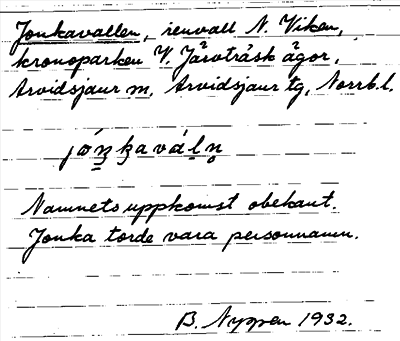 Jonkavallen, renvall N. Viken,
kronoparken V. Järvträsk ägor,
Arvidsjaur sn, Arvidsjaur tg, Norrb.l.
Namnets uppkomst obekant.
Jonka torde vara personnamn.
B. Nyppen 1932.